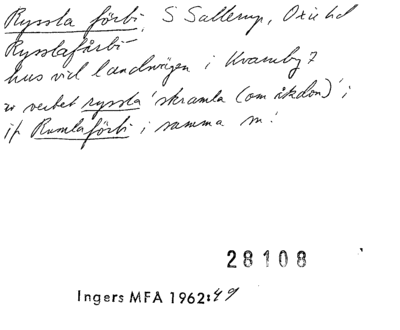 Ryssla förbi, S Sallerup, Oxie hd
Rysslafårbi
hus vid landsvägen i Kvarnby?
ty verbet ryssla 'skramla (om åkdon)';
jf Rumlaförbi i samma sn!
28108
Ingers MFA 1962:49